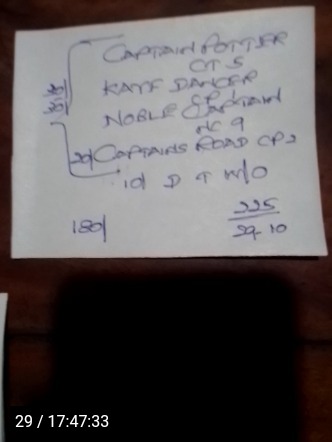 CAPTAIN POTTER
CT 5
KATE DANCER
NOBLE CAPTAIN
NC 9
20/ CAPTAINS ROAD CP2
10/ D T W/O
180/
225
29-10
29 / 17:47:33